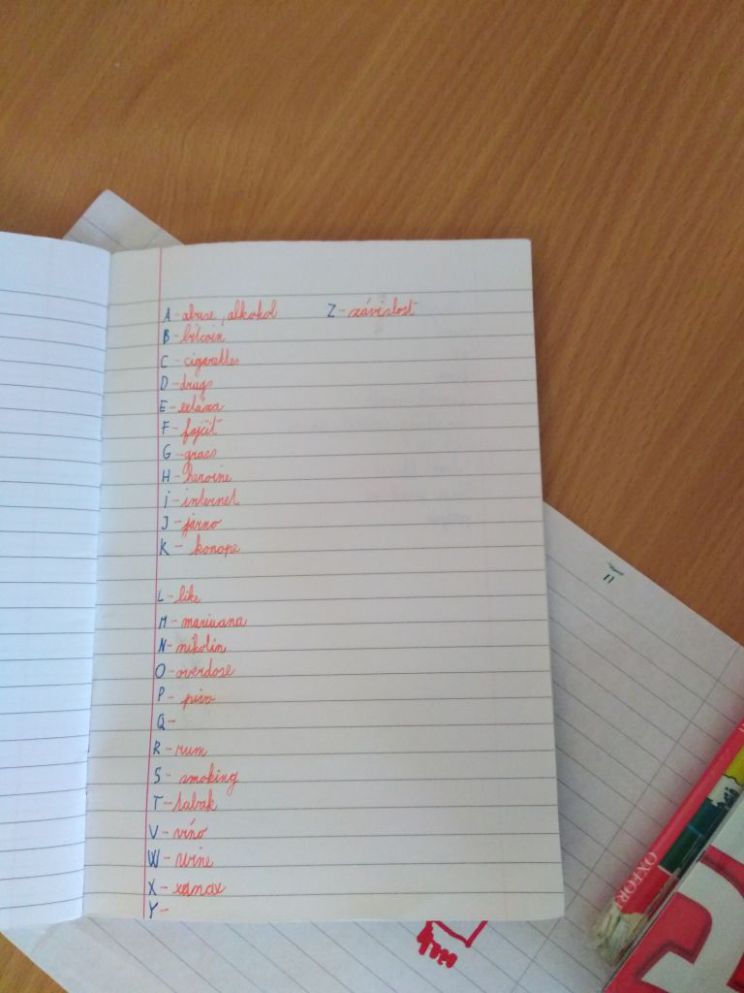 A - abuse, alkohol
Z - závislosť
B - bitcoin
C - cigarettes
D - drugs
E - extasa
F - fajčiť
G - grass
H - heroine
I - internet
J - járno
K - konope
L - like
M - mariuana
N - nikotin
O - overdose
P - pivo
Q -
R - rum
S - smoking
T - tabak
V - víno
W - wine
X - xanax
Y -
OXFORD